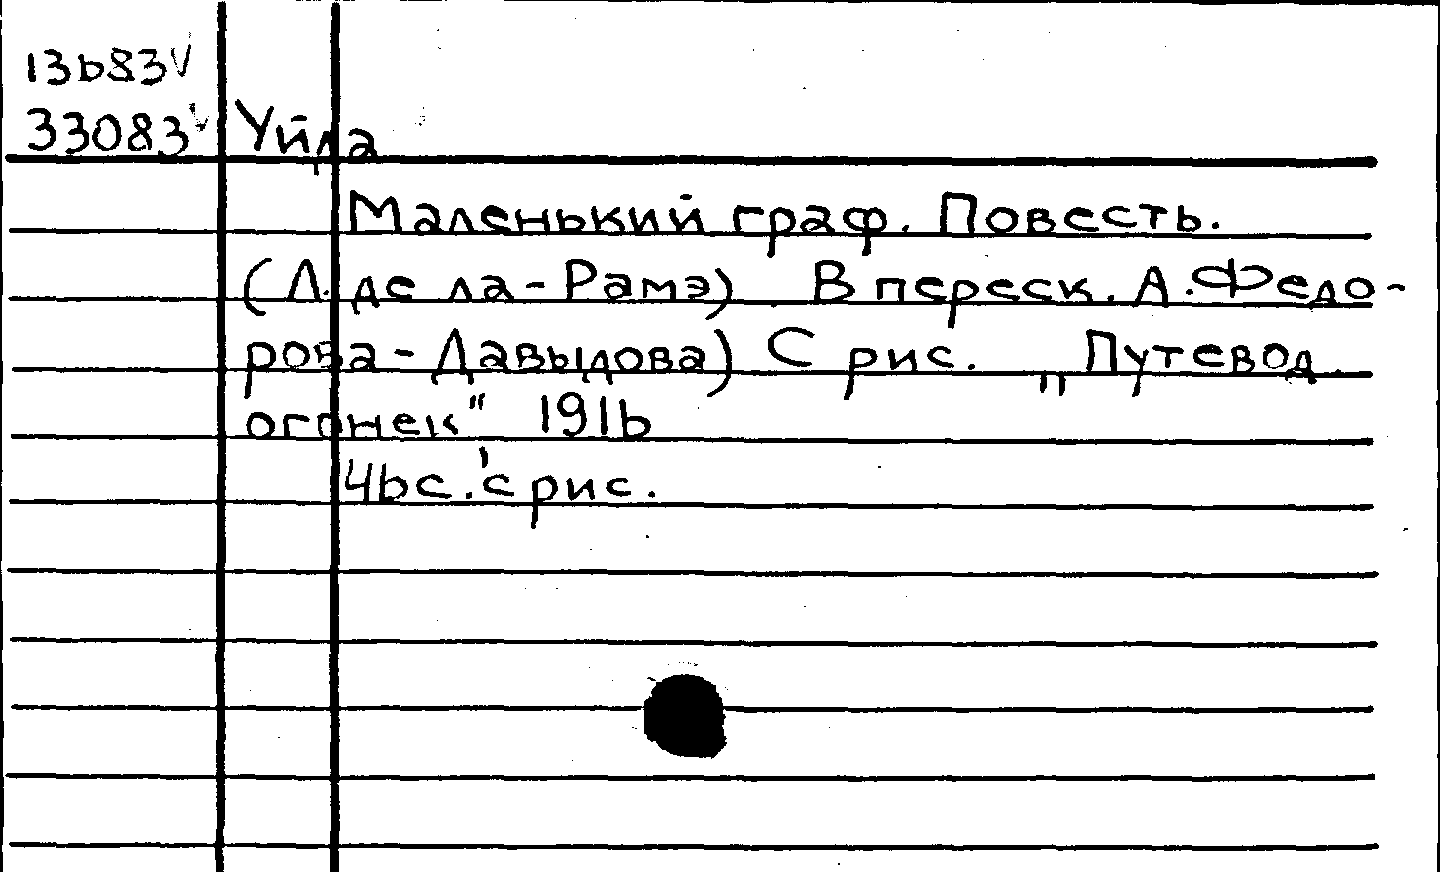 13683 V
33083 V Уйда
Маленький граф. Повесть.
(Л. де ла-Рамэ). В переск. А. Федо-
рова-Давыдова) С рис. „Путевод.
огонек" 1916
46 с. с рис.